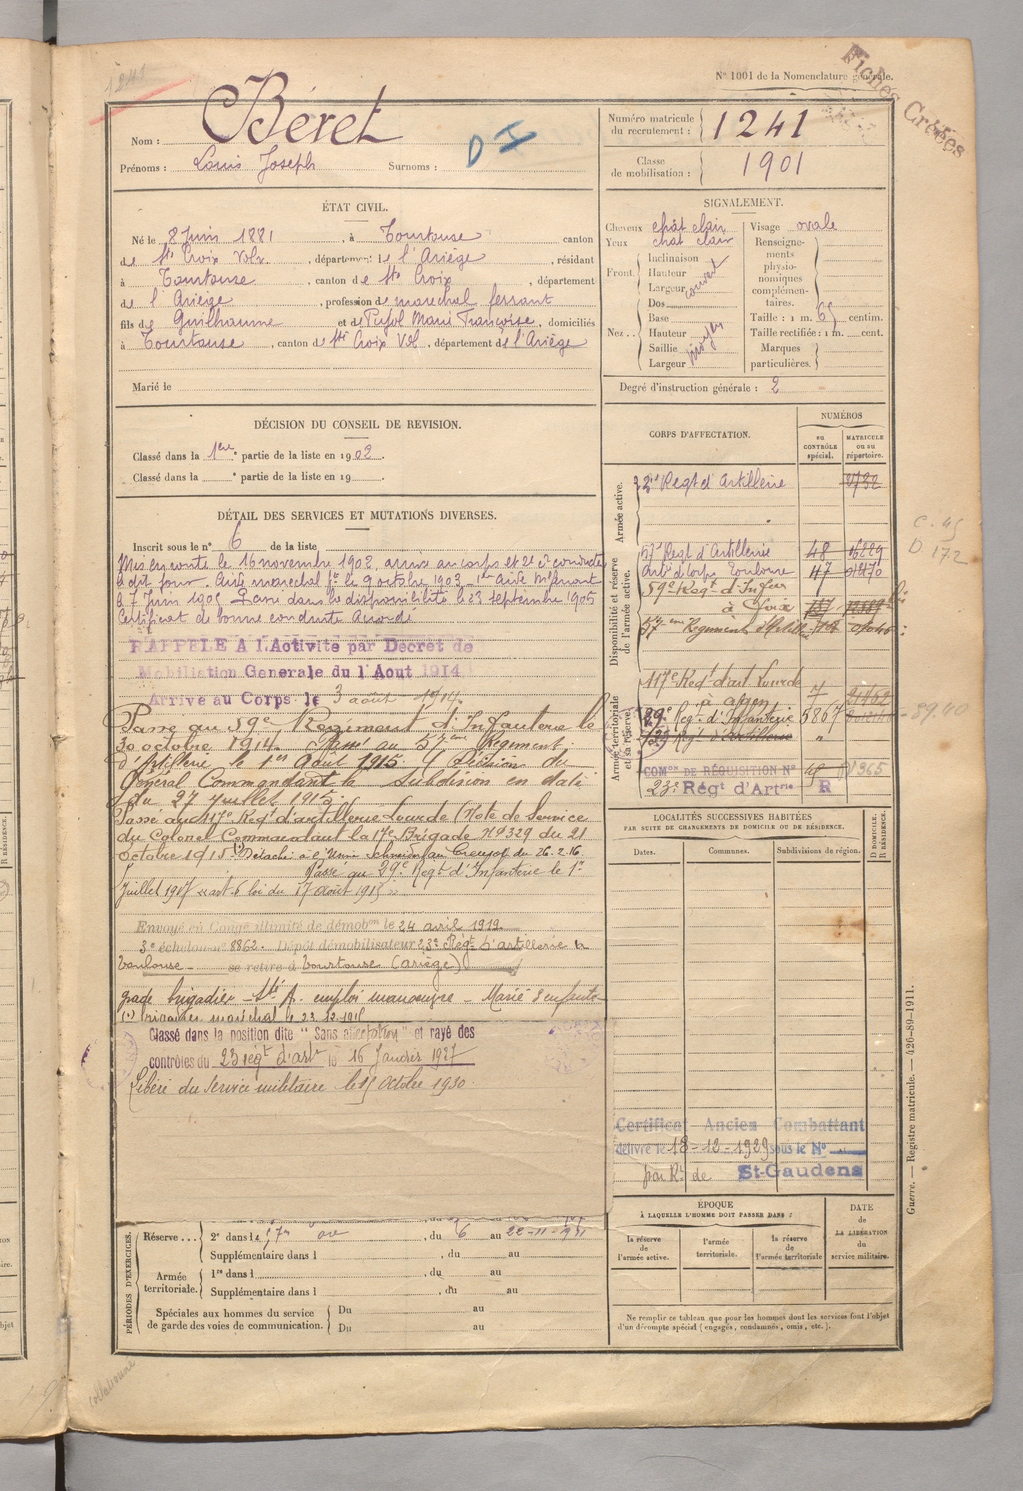 1241
N° 1001 de la Nomenclature générale.
Fiches Créées
Nom : Béret
Prénoms : Louis Joseph Surnoms :
D I
Numéro matricule du recrutement : 1241
Classe de mobilisation : 1901
ÉTAT CIVIL.
Né le 8 Juin 1881, à Tourtouse canton
de Ste Croix Volv., département de l'Ariège, résidant
à Tourtouse, canton de Ste Croix, département
de l'Ariège, profession de maréchal ferrant
fils de Guilhaume et de Pujol Marie Françoise, domiciliés
à Tourtouse, canton de Ste Croix Vol., département de l'Ariège
Marié le
SIGNALEMENT.
Cheveux chât clair
Yeux chat clair
Front Inclinaison
Hauteur
Largeur
couvert
Nez Dos
Base
Hauteur
Saillie
Largeur
moyen
Visage ovale
Renseignements physionomiques complémentaires.
Taille : 1 m. 65 centim.
Taille rectifiée : 1 m. cent.
Marques particulières.
Degré d'instruction générale : 2
DÉCISION DU CONSEIL DE REVISION.
Classé dans la 1ere partie de la liste en 1902.
Classé dans la e partie de la liste en 19
DÉTAIL DES SERVICES ET MUTATIONS DIVERSES.
Inscrit sous le n° 6 de la liste
Mis en route le 16 novembre 1902, arrivé au corps et 2e cr conducteur
le dit jour. Aide maréchal ft le 9 octobre 1903. 1er Aide Mal ferrant
le 7 Juin 1905 Passé dans la disponibilité le 23 septembre 1905
Certificat de bonne conduite Accordé
RAPPELE A L'Activité par Décret de
Mobilisation Generale du 1 Aout 1914
Arrivé au Corps le 3 août 1914.
Passé au 59e Régiment d'Infanterie le
30 octobre 1914. Passé au 57eme Régiment
d'Artillerie le 1er Aout 1915. Décision du
Général Commandant la Subdivision en date
du 27 juillet 1915.
Passé au 117e Régt d'artillerie Lourde (Note de Service
du Colonel Commandant la 17e Brigade N° 9329 du 21
octobre 1915. Détaché à l'Usine Schneider au Creusot du 26.2.16.
Passé au 29e Regt d'Infanterie le 1er
Juillet 1917 art. 6 loi du 17 Août 1915
Envoyé en Congé illimité de démobon le 24 avril 1919
3e échelon n° 8862. Dépôt démobilisateur 23e Régt d'artillerie à
Toulouse se retire à Tourtouse (Ariège)
grade brigadier emploi manoeuvre - Marié 3 enfants
(1) brigadier maréchal le 23.12.1915
Classé dans la position dite "Sans affectation" et rayé des
contrôles du 23 régt d'artie le 16 Janvier 1927
Libéré du Service militaire le 15 Octobre 1930
CORPS D'AFFECTATION.
NUMÉROS
au CONTRÔLE spécial.
MATRICULE ou au répertoire.
Armée active.
Disponibilité et réserve de l'armée active.
Armée territoriale et sa réserve.
Regt d'Artillerie
57e Regt d'Artillerie 48
Artie d'Corps Toulouse 47
59e Régt d'Infie
à Foix
57eme Régiment d'Artillie
117e Reg. d'art Lourde 7
à agen
29e Reg. d'Infanterie 5867
Reg. d'Artillerie "
COMon DE RÉQUISITION N°
23e Régt d'Artrie R
C. 45
D. 172
LOCALITÉS SUCCESSIVES HABITÉES
PAR SUITE DE CHANGEMENTS DE DOMICILE OU DE RÉSIDENCE.
Dates. Communes. Subdivisions de région. D DOMICILE. R RÉSIDENCE.
Certificat Ancien Combattant
délivré le 18-12-1929 sous le N°
par Rt de St-Gaudens
ÉPOQUE
À LAQUELLE L'HOMME DOIT PASSER DANS :
la réserve de l'armée active. l'armée territoriale. la réserve de l'armée territoriale
DATE de LA LIBÉRATION du service militaire.
Ne remplir ce tableau que pour les hommes dont les services font l'objet
d'un décompte spécial (engagés, condamnés, omis, etc.).
PÉRIODES D'EXERCICES.
Réserve... 2e dans le 57e, du 6 au 22-11-1911
Supplémentaire dans l, du au
Armée territoriale. 1re dans l, du au
Supplémentaire dans l, du au
Spéciales aux hommes du service Du au
de garde des voies de communication. Du au
Guerre. — Registre matricule. — 426-89-1911.